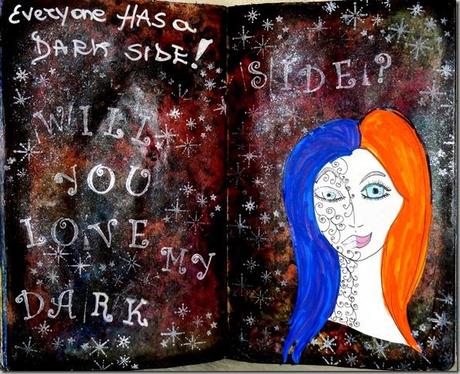 Everyone HAS a
DARK SIDE!
WILL
YOU
LOVE
MY
DARK
SIDE!?